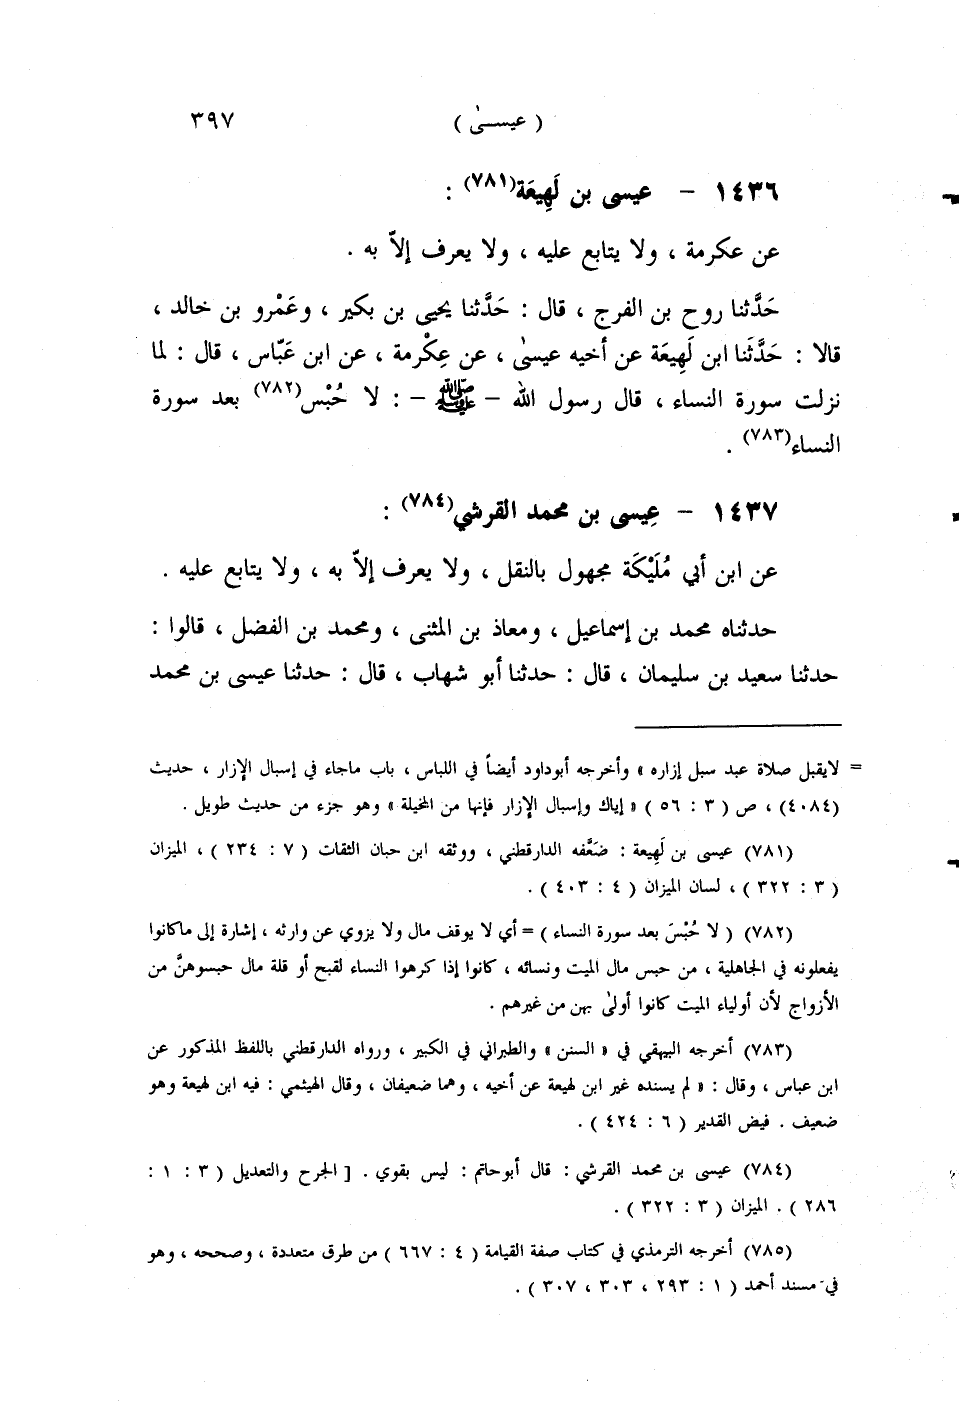 ( عيســىٰ ) ٣٩٧
١٤٣٦ – عيسى بن لَهِيعَة(٧٨١) :
عن عكرمة ، ولا يتابع عليه ، ولا يعرف إلاّ به .
حَدَّثنا روح بن الفرج ، قال : حَدَّثنا يحيى بن بكير ، وعَمْرو بن خالد ،
قالا : حَدَّثَنا ابن لَهِيعَة عن أخيه عيسىٰ ، عن عِكْرمة ، عن ابن عَبّاس ، قال : لما
نزلت سورة النساء ، قال رسول الله – ﷺ – : لا حُبْس(٧٨٢) بعد سورة
النساء(٧٨٣) .
١٤٣٧ – عِيسى بن محمد القرشي(٧٨٤) :
عن ابن أبي مُلَيْكَة مجهول بالنقل ، ولا يعرف إلاّ به ، ولا يتابع عليه .
حدثناه محمد بن إسماعيل ، ومعاذ بن المثنى ، ومحمد بن الفضل ، قالوا :
حدثنا سعيد بن سليمان ، قال : حدثنا أبو شهاب ، قال : حدثنا عيسى بن محمد
= لايقبل صلاة عبد سبل إزاره » وأخرجه أبوداود أيضاً في اللباس ، باب ماجاء في إسبال الإزار ، حديث
(٤٠٨٤) ، ص ( ٣ : ٥٦ ) « إياك وإسبال الإزار فإنها من المخيلة » وهو جزء من حديث طويل .
(٧٨١) عيسى بن لَهِيعة : ضَعَّفه الدارقطني ، ووثقه ابن حبان الثقات ( ٧ : ٢٣٤ ) ، الميزان
( ٣ : ٣٢٢ ) ، لسان الميزان ( ٤ : ٤٠٣ ) .
(٧٨٢) ( لا حُبْسَ بعد سورة النساء ) = أي لا يوقف مال ولا يزوي عن وارثه ، إشارة إلى ماكانوا
يفعلونه في الجاهلية ، من حبس مال الميت ونسائه ، كانوا إذا كرهوا النساء لقبح أو قلة مال حبسوهنَّ من
الأزواج لأن أولياء الميت كانوا أولىٰ بهن من غيرهم .
(٧٨٣) أخرجه البيهقي في « السنن » والطبراني في الكبير ، ورواه الدارقطني باللفظ المذكور عن
ابن عباس ، وقال : « لم يسنده غير ابن لهيعة عن أخيه ، وهما ضعيفان ، وقال الهيثمي : فيه ابن لهيعة وهو
ضعيف . فيض القدير ( ٦ : ٤٢٤ ) .
(٧٨٤) عيسى بن محمد القرشي : قال أبوحاتم : ليس بقوي . [ الجرح والتعديل ( ٣ : ١ :
٢٨٦ ) . الميزان ( ٣ : ٣٢٢ ) .
(٧٨٥) أخرجه الترمذي في كتاب صفة القيامة ( ٤ : ٦٦٧ ) من طرق متعددة ، وصححه ، وهو
في مسند أحمد ( ١ : ٢٩٣ ، ٣٠٣ ، ٣٠٧ ) .